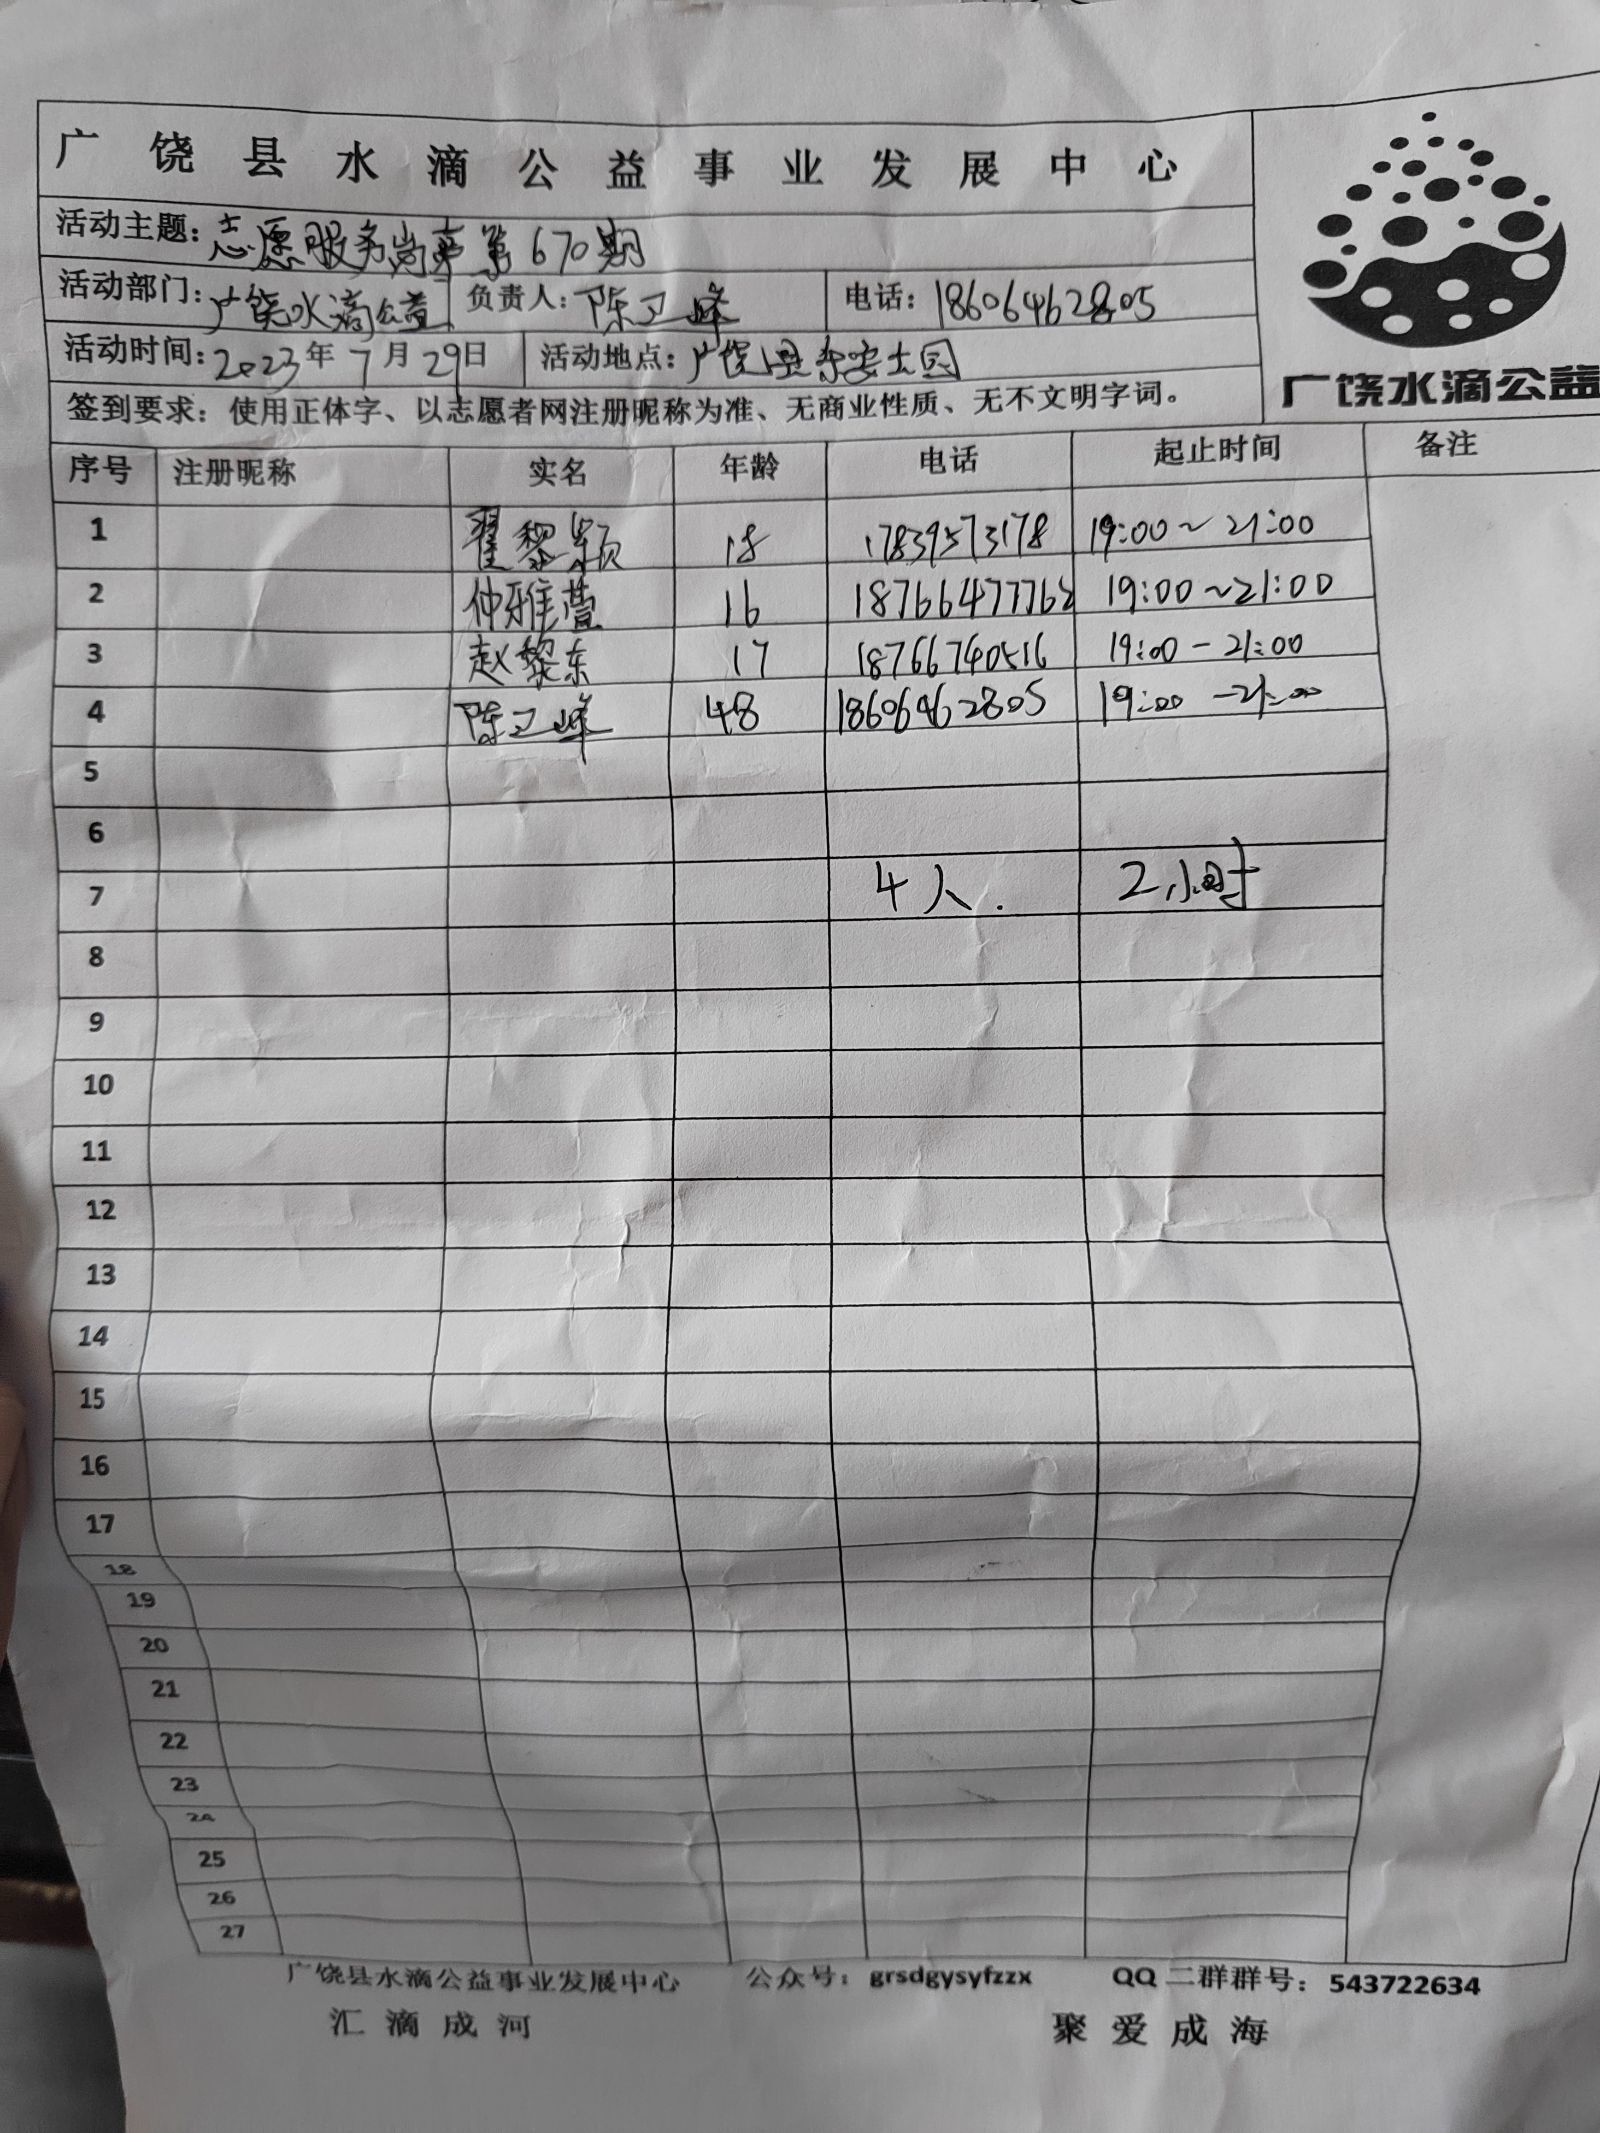 广饶县水滴公益事业发展中心
活动主题：志愿服务岗亭第670期
活动部门：广饶水滴公益 负责人：陈卫峰 电话：18606462805
活动时间：2023年7月29日 活动地点：广饶县乐安大园
广饶水滴公益
签到要求：使用正体字、以志愿者网注册昵称为准、无商业性质、无不文明字词。
序号 注册昵称 实名 年龄 电话 起止时间 备注
1 翟黎颖 18 17839573178 19:00～21:00
2 仲雅萱 16 18766477762 19:00～21:00
3 赵黎东 17 18766740516 19:00－21:00
4 陈卫峰 48 18606462805 19:00－21:00
5
6
7 4人. 2小时
8
9
10
11
12
13
14
15
16
17
18
19
20
21
22
23
24
25
26
27
广饶县水滴公益事业发展中心 公众号：grsdgysyfzzx QQ二群群号：543722634
汇滴成河 聚爱成海